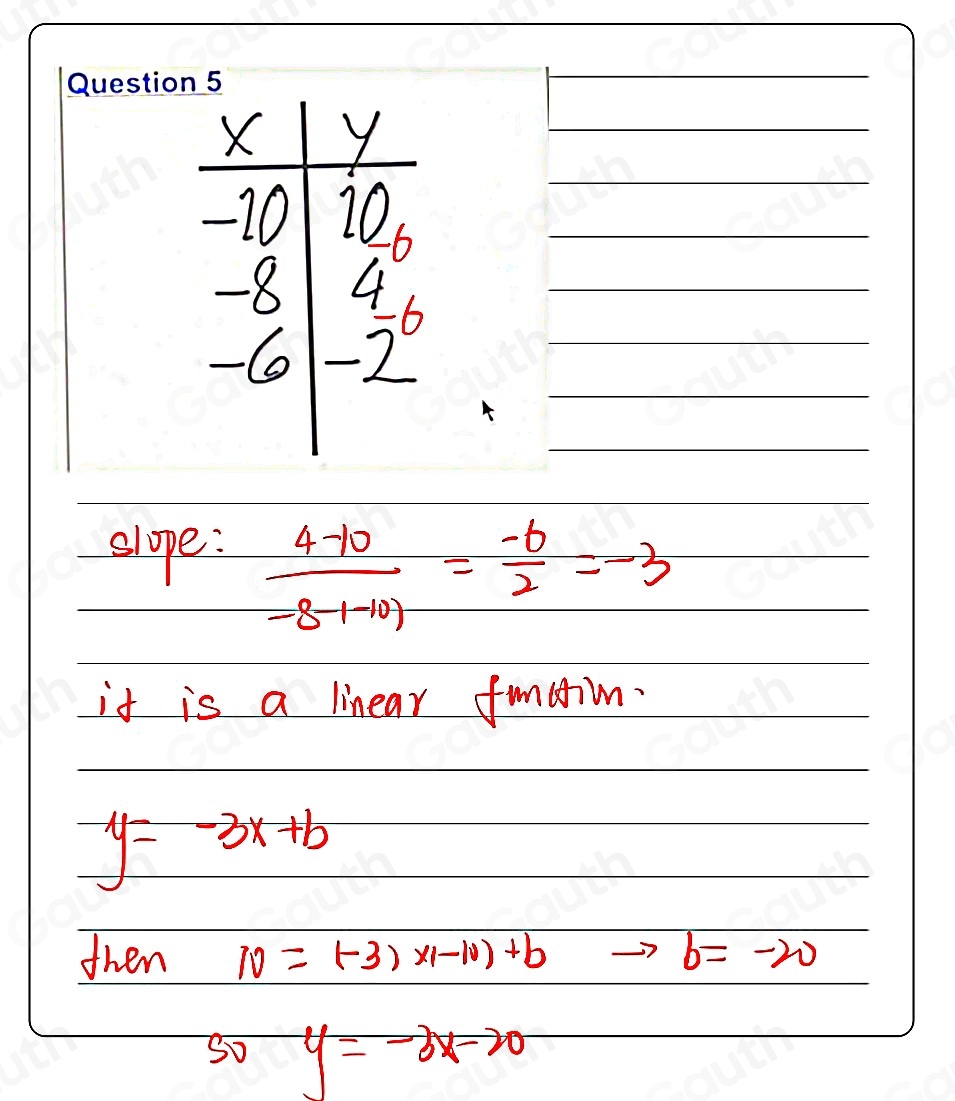 Question 5
x y
-10 10
-6
-8 4
-6
-6 -2
slope: 4-10 / -8-(-10) = -6/2 = -3
it is a linear function.
y= -3x+b
then 10 = (-3)×(-10)+b → b= -20
so y= -3x-20